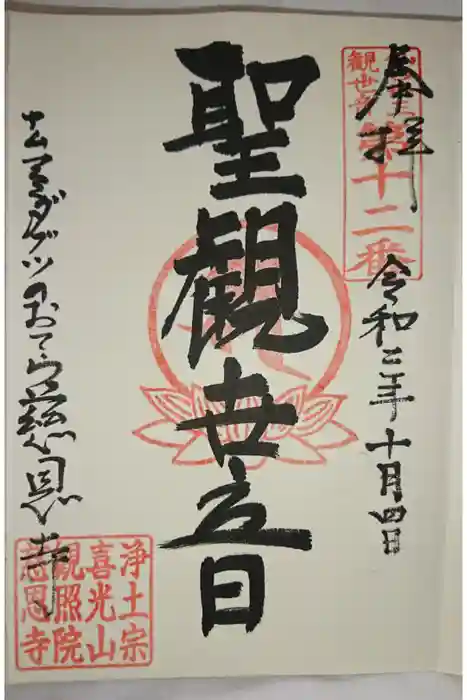 奉拝
第十二番
観世音
令和二年十月四日
聖観世音
ホタルブクロのおてら慈恩寺
浄土宗
喜光山
観照院
慈恩寺